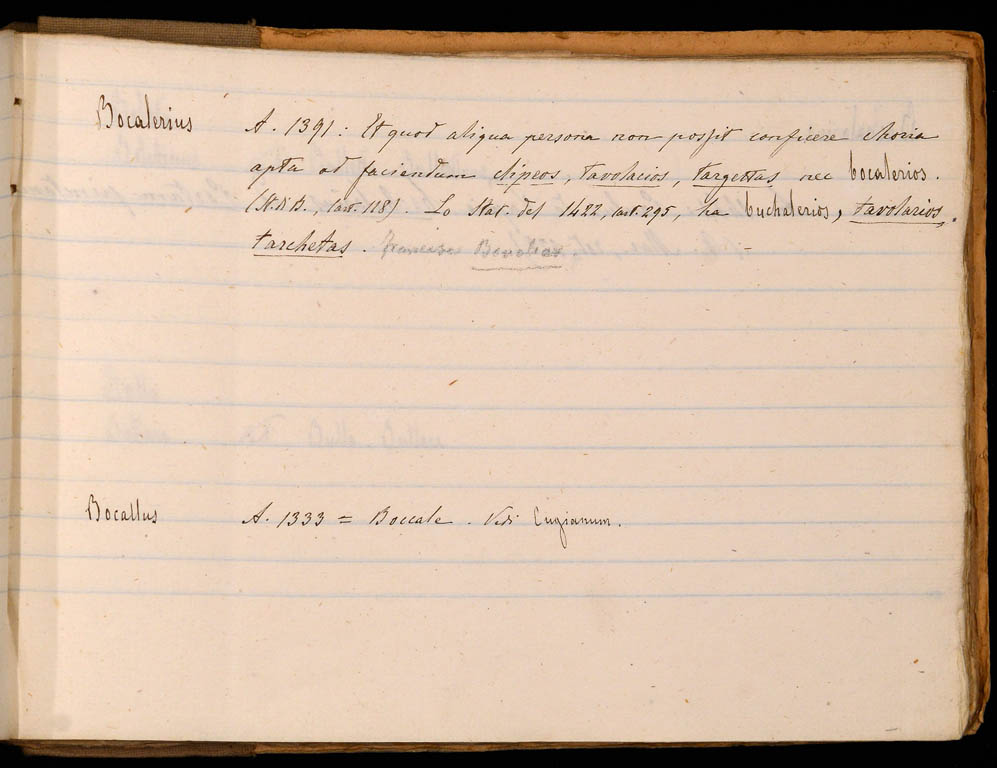 Bocalerius A. 1391: Et quod aliqua persona non possit conficere choria
apta ad faciendum clipeos, tavolacios, targettas nec bocalerios.
(St. d. B., cart. 118). Lo Stat. del 1422, cart. 295, ha buchalerios, tavolarios,
tarchetas.
Bocallus A. 1333 = Boccale. Vedi Cugianum.